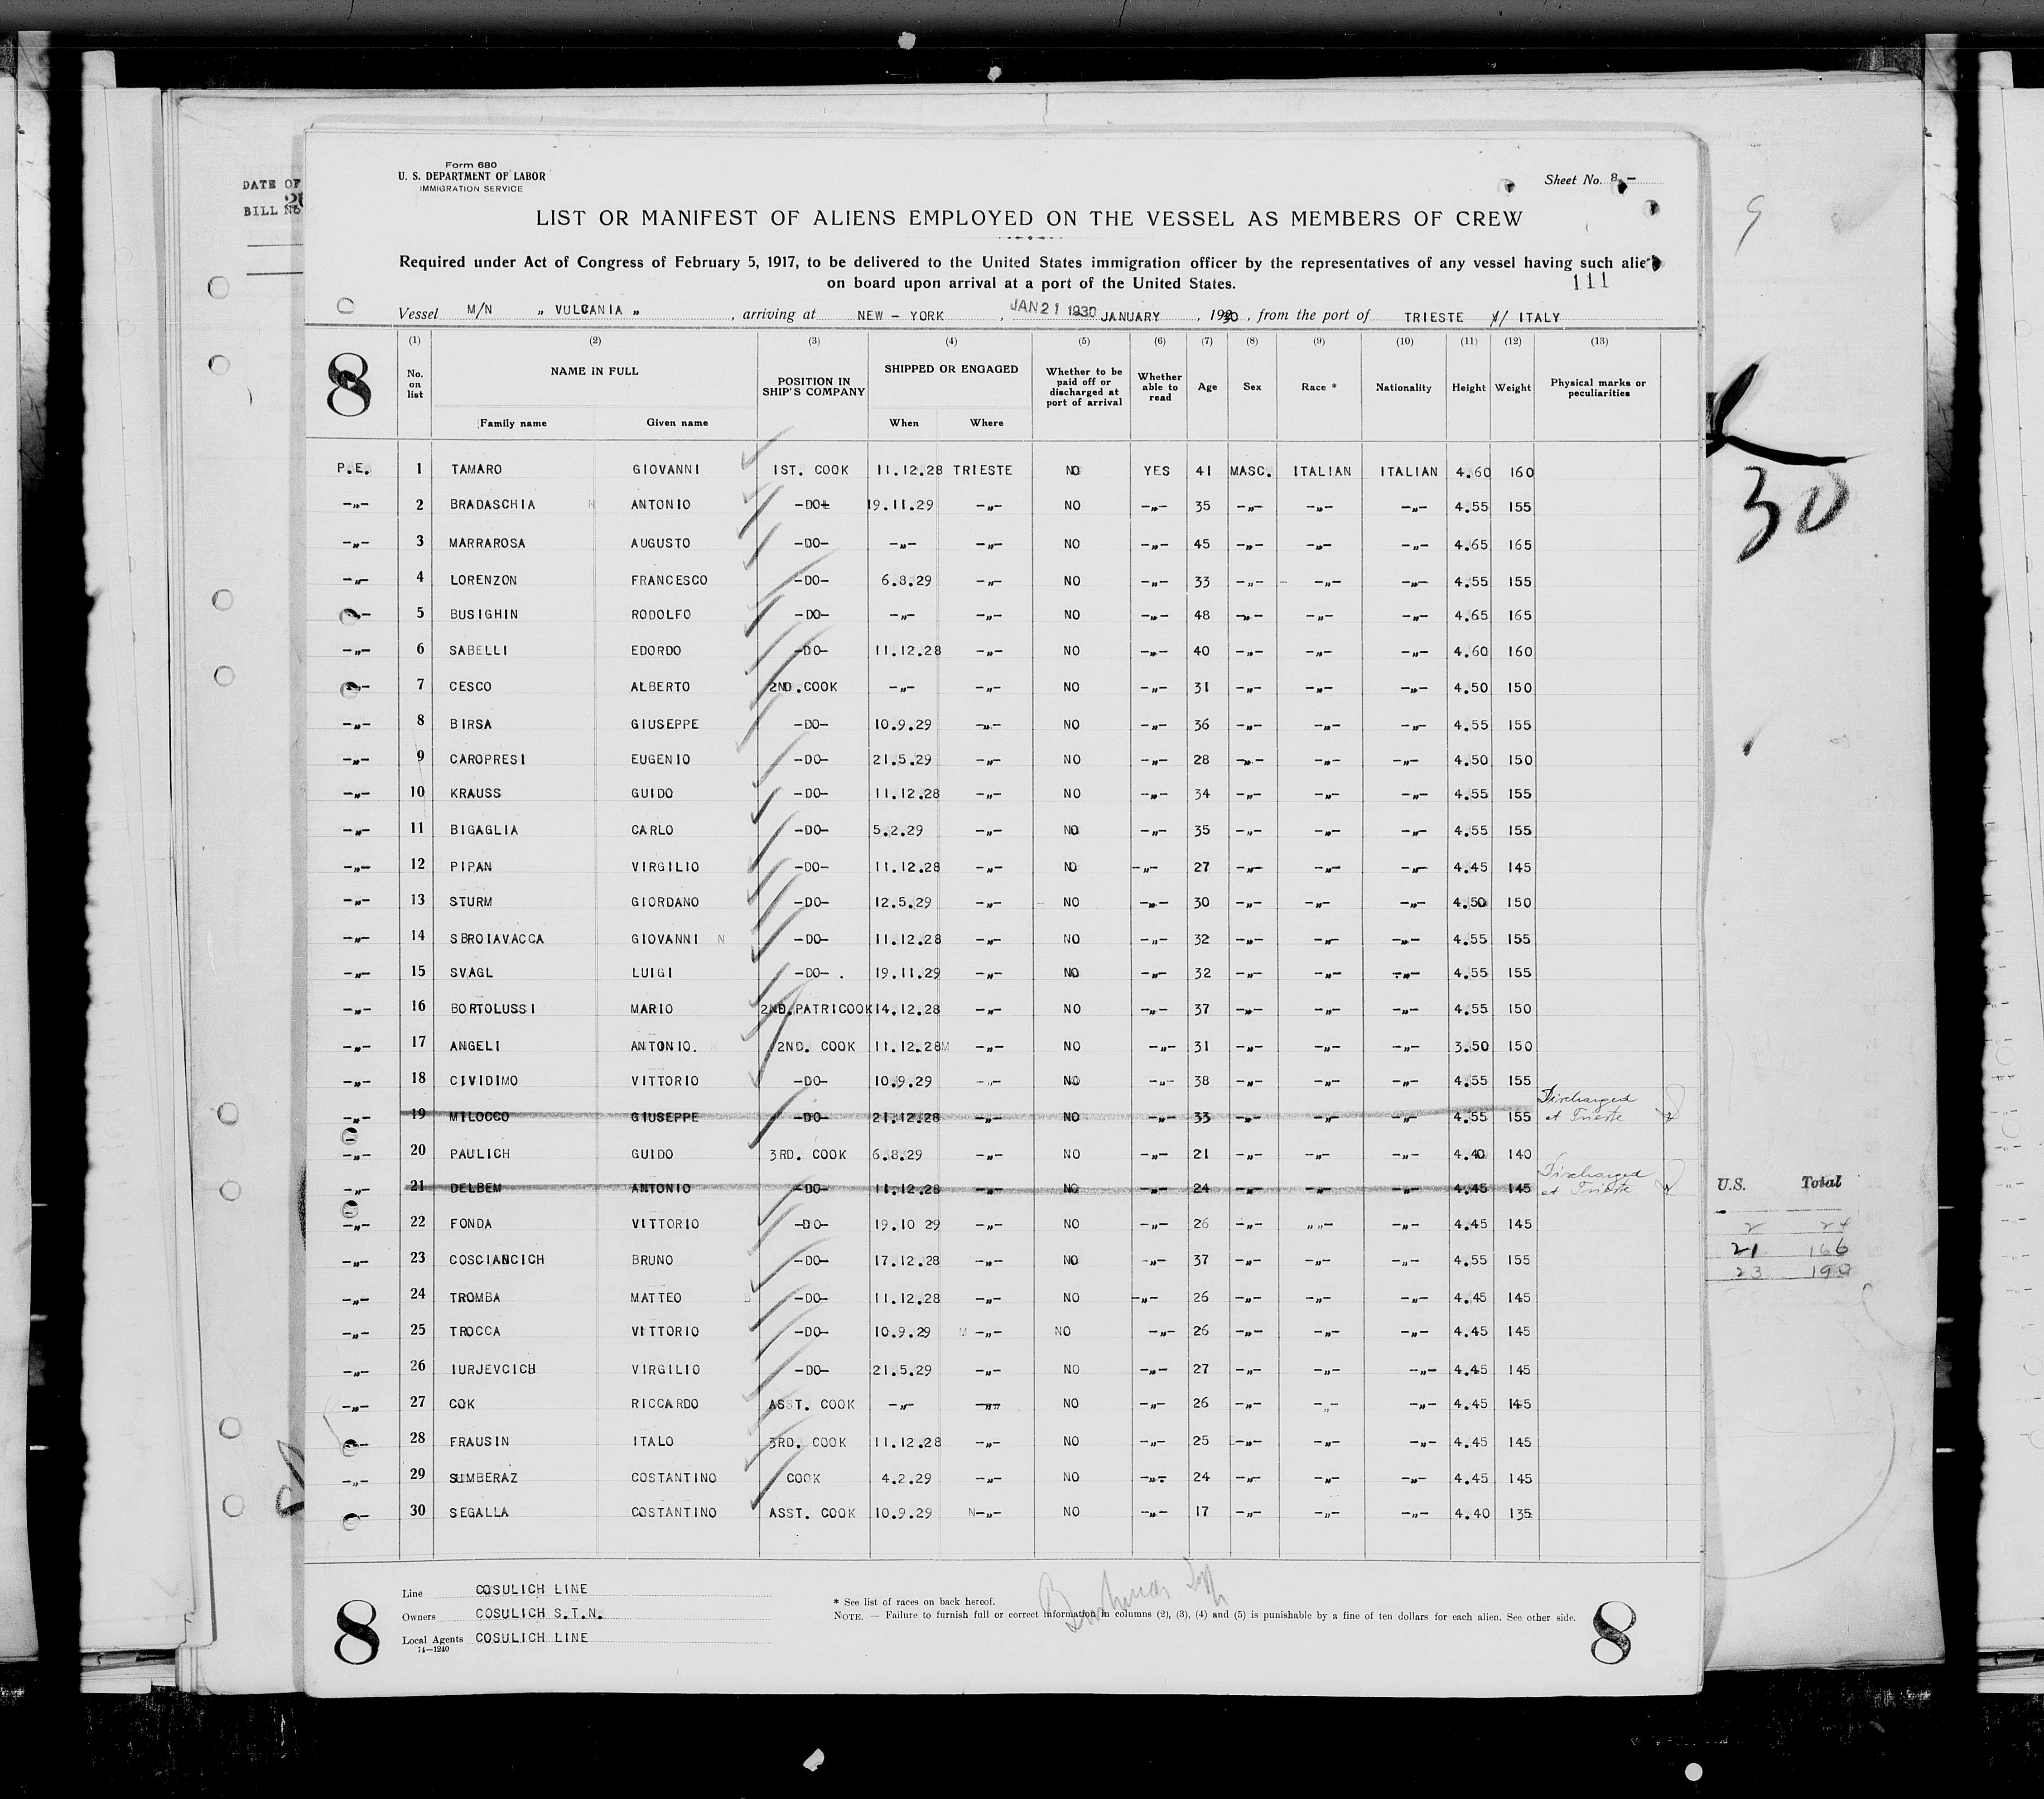 DATE OF
BILL No
Form 680
U. S. DEPARTMENT OF LABOR
IMMIGRATION SERVICE
Sheet No. 8 -
LIST OR MANIFEST OF ALIENS EMPLOYED ON THE VESSEL AS MEMBERS OF CREW
9
Required under Act of Congress of February 5, 1917, to be delivered to the United States immigration officer by the representatives of any vessel having such alie
on board upon arrival at a port of the United States.
111
Vessel M/N " VULCANIA " , arriving at NEW - YORK , JAN 21 1930 JANUARY , 1930 , from the port of TRIESTE // ITALY
8
(1) (2) (3) (4) (5) (6) (7) (8) (9) (10) (11) (12) (13)
No. on list NAME IN FULL POSITION IN SHIP'S COMPANY SHIPPED OR ENGAGED Whether to be paid off or discharged at port of arrival Whether able to read Age Sex Race * Nationality Height Weight Physical marks or peculiarities
Family name Given name When Where
P.E. 1 TAMARO GIOVANNI 1ST. COOK 11.12.28 TRIESTE NO YES 41 MASC. ITALIAN ITALIAN 4.60 160
30
-"- 2 BRADASCHIA N ANTONIO -DO- 19.11.29 -"- NO -"- 35 -"- -"- -"- 4.55 155
-"- 3 MARRAROSA AUGUSTO -DO- -"- -"- NO -"- 45 -"- -"- -"- 4.65 165
-"- 4 LORENZON FRANCESCO -DO- 6.8.29 -"- NO -"- 33 -"- -"- -"- 4.55 155
5 BUSIGHIN RODOLFO -DO- -"- -"- NO -"- 48 -"- -"- -"- 4.65 165
-"- 6 SABELLI EDORDO -DO- 11.12.28 -"- NO -"- 40 -"- -"- -"- 4.60 160
7 CESCO ALBERTO 2ND.COOK -"- -"- NO -"- 31 -"- -"- -"- 4.50 150
-"- 8 BIRSA GIUSEPPE -DO- 10.9.29 -"- NO -"- 36 -"- -"- -"- 4.55 155
-"- 9 CAROPRESI EUGENIO -DO- 21.5.29 -"- NO -"- 28 -"- -"- -"- 4.50 150
-"- 10 KRAUSS GUIDO -DO- 11.12.28 -"- NO -"- 34 -"- -"- -"- 4.55 155
-"- 11 BIGAGLIA CARLO -DO- 5.2.29 -"- NO -"- 35 -"- -"- -"- 4.55 155
-"- 12 PIPAN VIRGILIO -DO- 11.12.28 -"- NO -"- 27 -"- -"- -"- 4.45 145
-"- 13 STURM GIORDANO -DO- 12.5.29 -"- NO -"- 30 -"- -"- -"- 4.50 150
-"- 14 SBROIAVACCA GIOVANNI N -DO- 11.12.28 -"- NO -"- 32 -"- -"- -"- 4.55 155
-"- 15 SVAGL LUIGI -DO- . 19.11.29 -"- NO -"- 32 -"- -"- -"- 4.55 155
-"- 16 BORTOLUSSI MARIO 2ND.PATRICOOK 14.12.28 -"- NO -"- 37 -"- -"- -"- 4.55 150
-"- 17 ANGELI ANTONIO. 2ND. COOK 11.12.28M -"- NO -"- 31 -"- -"- -"- 3.50 150
-"- 18 CIVIDIMO VITTORIO -DO- 10.9.29 -"- NO -"- 38 -"- -"- -"- 4.55 155
-"- 19 MILOCCO GIUSEPPE -DO- 21.12.28 -"- NO -"- 33 -"- -"- -"- 4.55 155 Discharged at Trieste
-"- 20 PAULICH GUIDO 3RD. COOK 6.8.29 -"- NO -"- 21 -"- -"- -"- 4.40 140
-"- 21 DELBEM ANTONIO -DO- 11.12.28 -"- NO -"- 24 -"- -"- -"- 4.45 145 Discharged at Trieste
U.S. Total
-"- 22 FONDA VITTORIO -DO- 19.10 29 -"- NO -"- 26 -"- ""- -"- 4.45 145
2 24
21 166
23 190
-"- 23 COSCIANCICH BRUNO -DO- 17.12.28 -"- NO -"- 37 -"- -"- -"- 4.55 155
-"- 24 TROMBA MATTEO -DO- 11.12.28 -"- NO -"- 26 -"- -"- -"- 4.45 145
-"- 25 TROCCA VITTORIO -DO- 10.9.29 M -"- NO -"- 26 -"- -"- -"- 4.45 145
-"- 26 IURJEVCICH VIRGILIO -DO- 21.5.29 -"- NO -"- 27 -"- -"- -"- 4.45 145
-"- 27 COK RICCARDO ASST. COOK -"- -"- NO -"- 26 -"- -"- -"- 4.45 145
28 FRAUSIN ITALO 3RD. COOK 11.12.28 -"- NO -"- 25 -"- -"- -"- 4.45 145
-"- 29 SUMBERAZ COSTANTINO COOK 4.2.29 -"- NO -"- 24 -"- -"- -"- 4.45 145
30 SEGALLA COSTANTINO ASST. COOK 10.9.29 N-"- NO -"- 17 -"- -"- -"- 4.40 135
8
Line COSULICH LINE
Owners COSULICH S.T.N.
Local Agents COSULICH LINE
14-1240
* See list of races on back hereof.
NOTE. — Failure to furnish full or correct information in columns (2), (3), (4) and (5) is punishable by a fine of ten dollars for each alien. See other side.
8